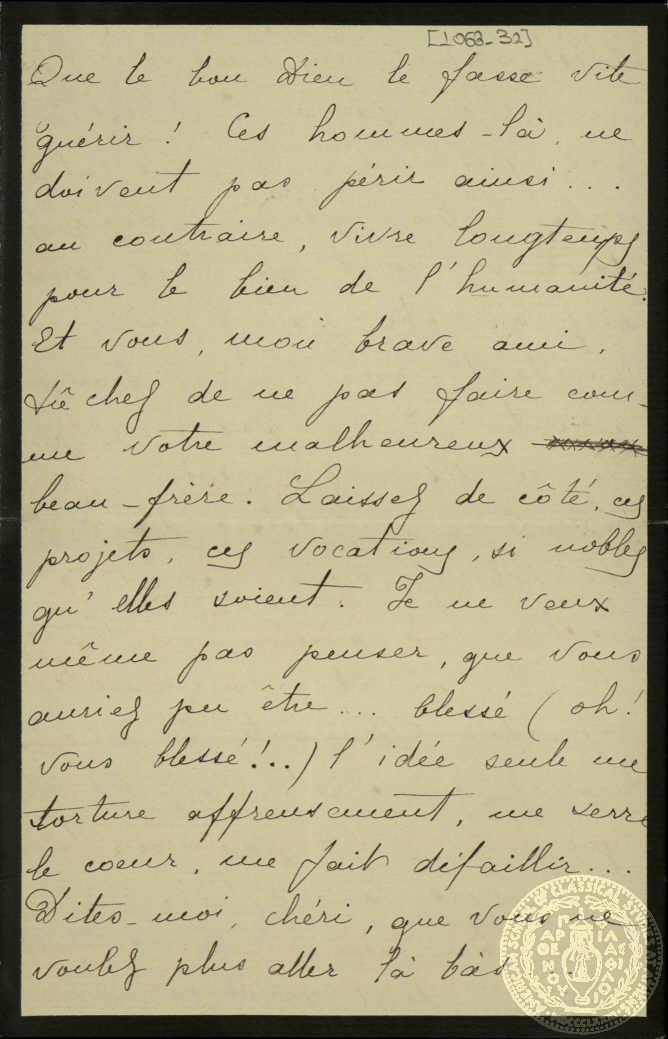 [1063-32]
Que le bon Dieu le fasse vite
guérir ! Ces hommes-là, ne
doivent pas périr ainsi...
au contraire, vivre longtemps
pour le bien de l'humanité.
Et vous, mon brave ami,
tâchez de ne pas faire com-
me votre malheureux
beau-frère. Laissez de côté, ces
projets, ces vocations, si nobles
qu'elles soient. Je ne veux
même pas penser, que vous
auriez pu être... blessé (oh!
vous blessé!..) l'idée seule me
torture affreusement, me serre
le coeur, me fait défaillir...
Dites-moi, chéri, que vous ne
voulez plus aller là bàs...